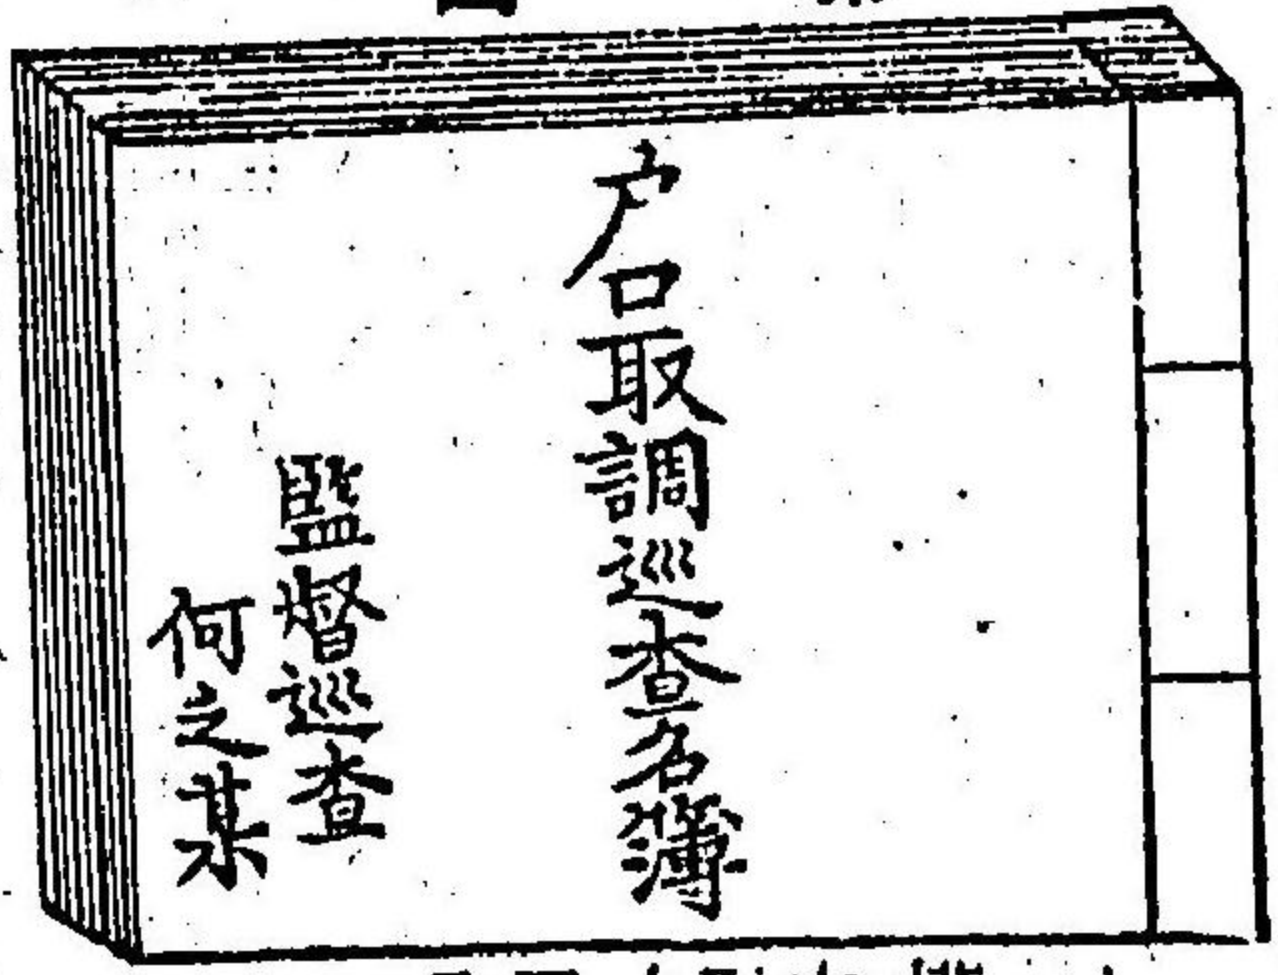 戸口取調巡査名簿
監督巡査
何之某